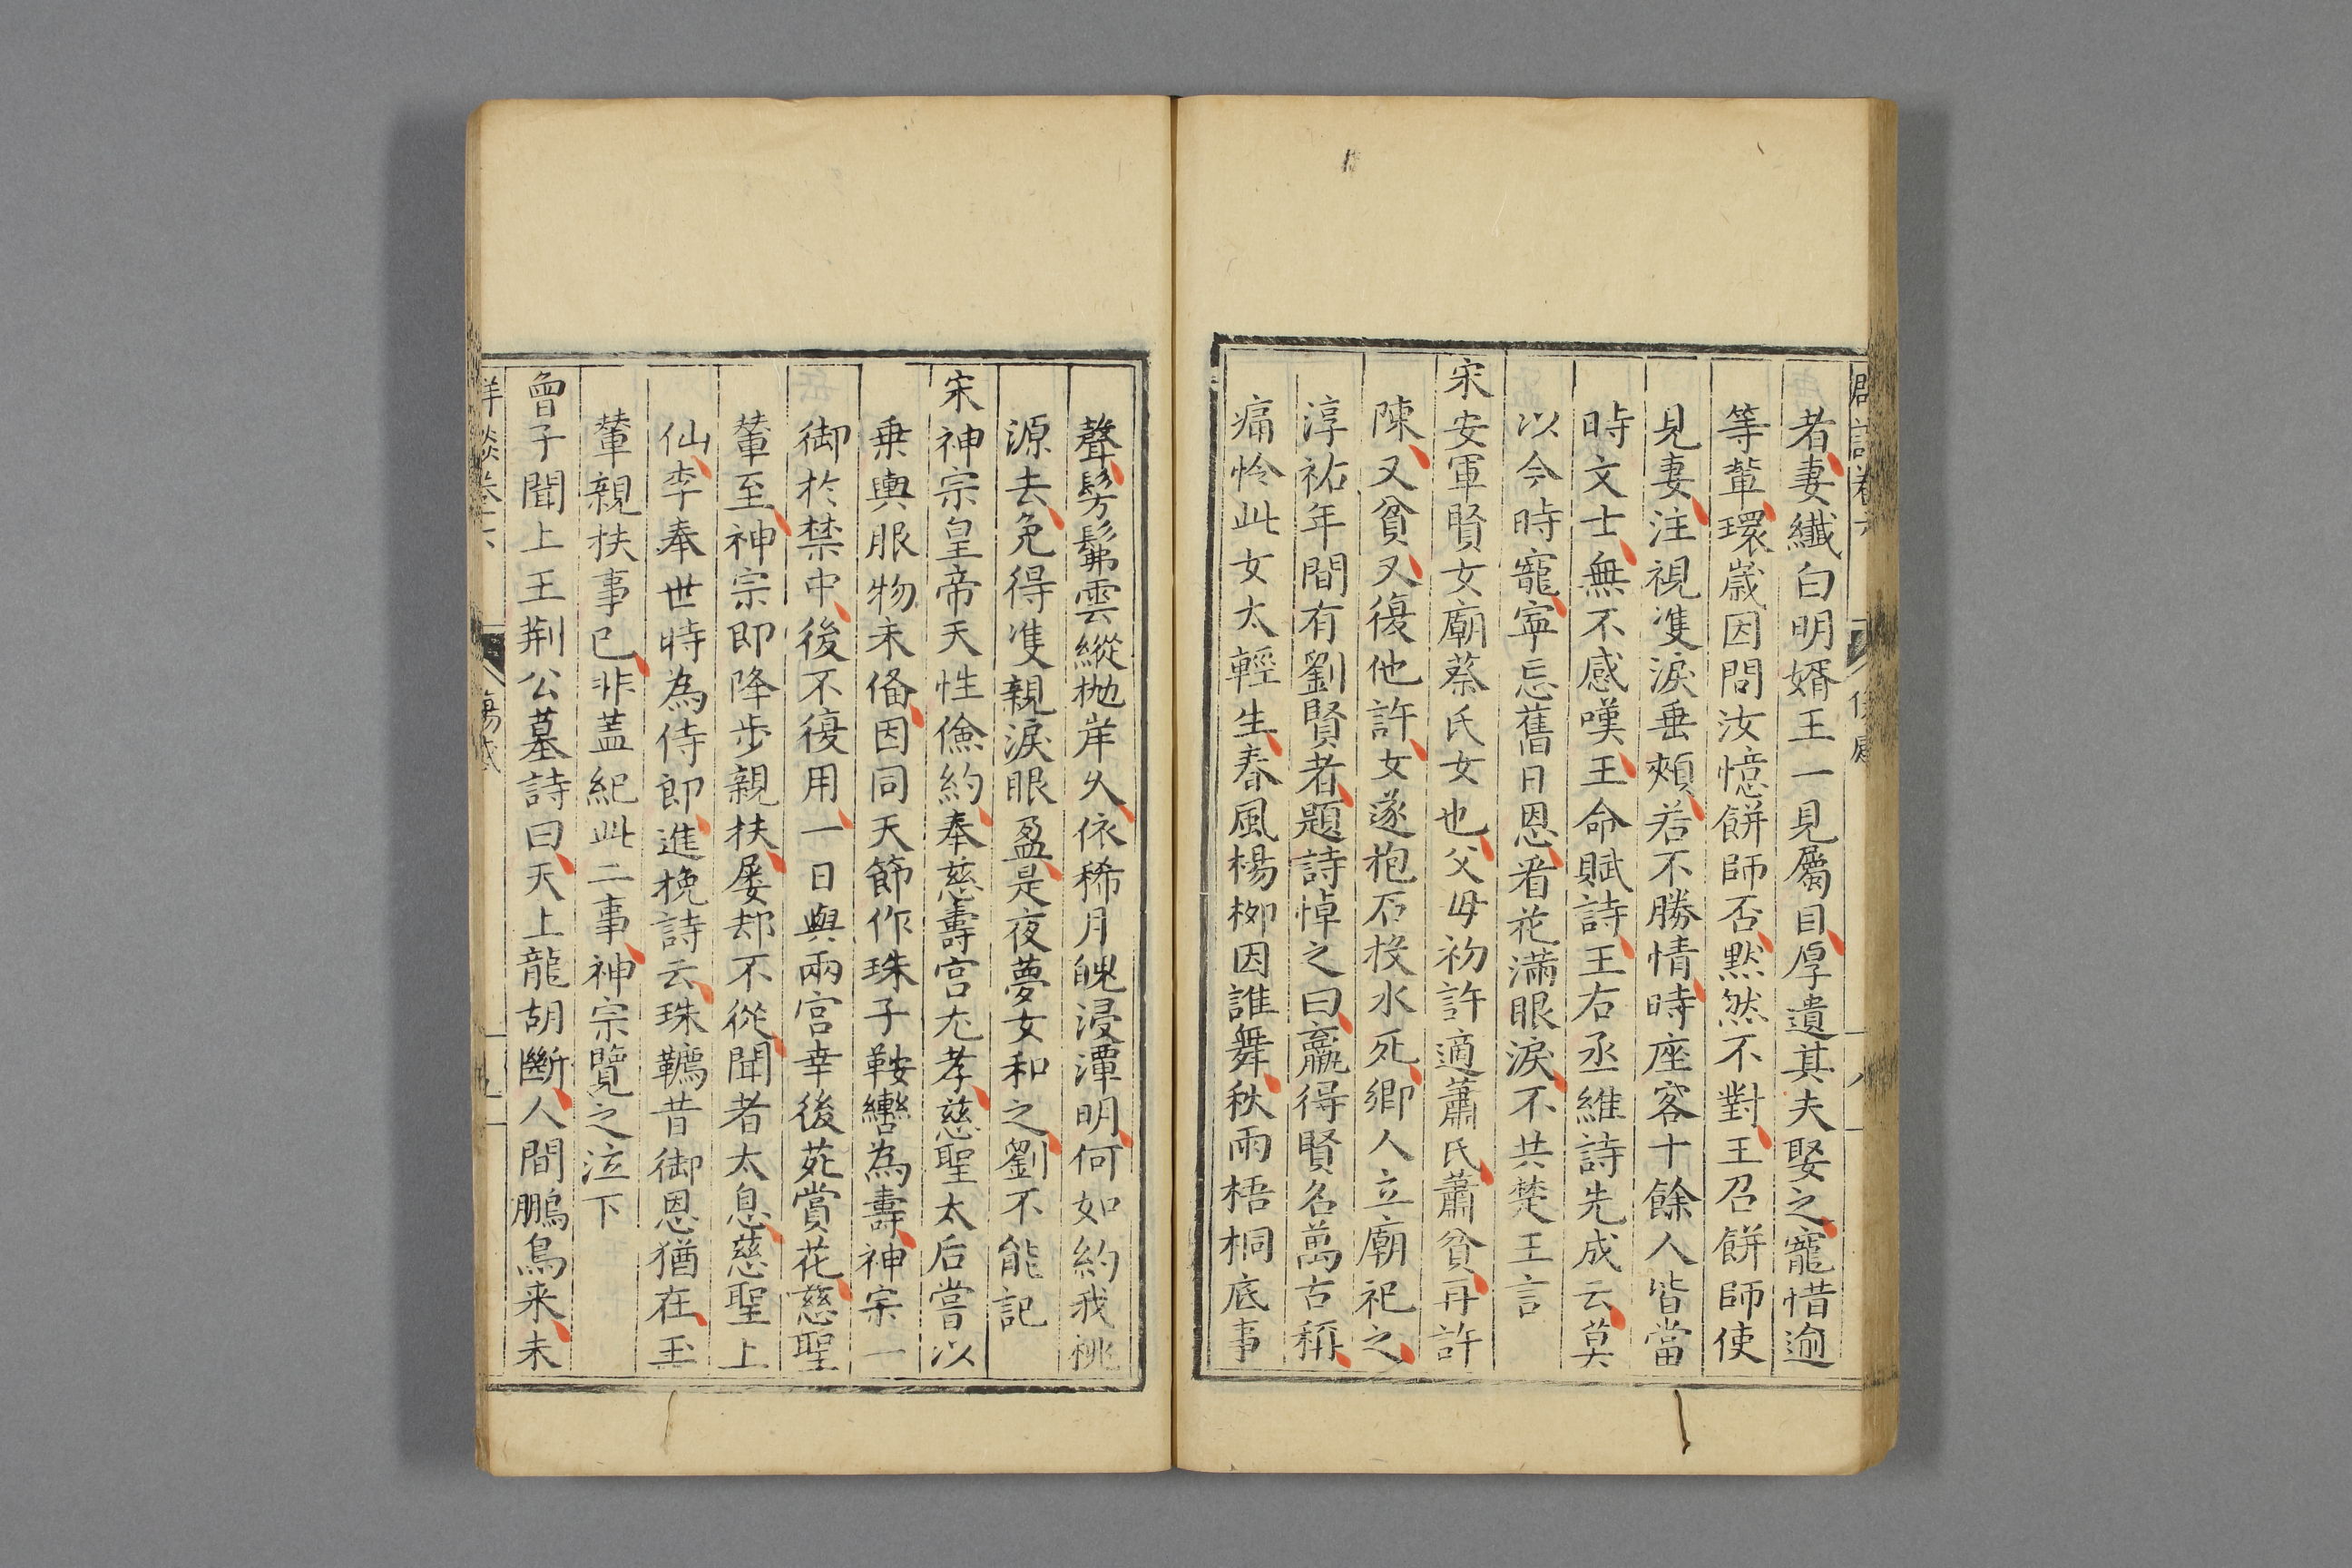 者妻纖白明婿王一見屬目厚遺其夫娶之寵惜逾
等輩環歲因問汝憶餅師否默然不對王召餅師使
見妻注視隻淚垂頰若不勝情時座客十餘人皆當
時文士無不感嘆王命賦詩王右丞維詩先成云莫
以今時寵寧忘舊日恩看花滿眼淚不共楚王言
宋安軍賢女廟蔡氏女也父毋初許適蕭氏蕭貧再許
陳又貧又復他許女遂抱石投水死鄉人立廟祀之
淳祐年間有劉賢者題詩悼之曰羸得賢名萬古稱
痛怜此女太輕生春風楊柳因誰舞秋雨梧桐底事
聲髣髴雲縱拋岸久依稀月魄浸潭明何如約我桃
源去免得隻親淚眼盈是夜夢女和之劉不能記
宋神宗皇帝天性儉約奉慈壽宮尤孝慈聖太后嘗以
乗輿服物未俻因同天節作珠子鞍轡為壽神宗一
御於禁中後不復用一日與兩宮幸後苑賞花慈聖
輦至神宗即降步親扶屡却不從聞者太息慈聖上
仙李奉世時為侍郎進挽詩云珠韉昔御恩猶在玉
輦親扶事已非蓋紀此二事神宗覽之泣下
曾子聞上王荆公墓詩曰天上龍胡斷人間鵬鳥来未